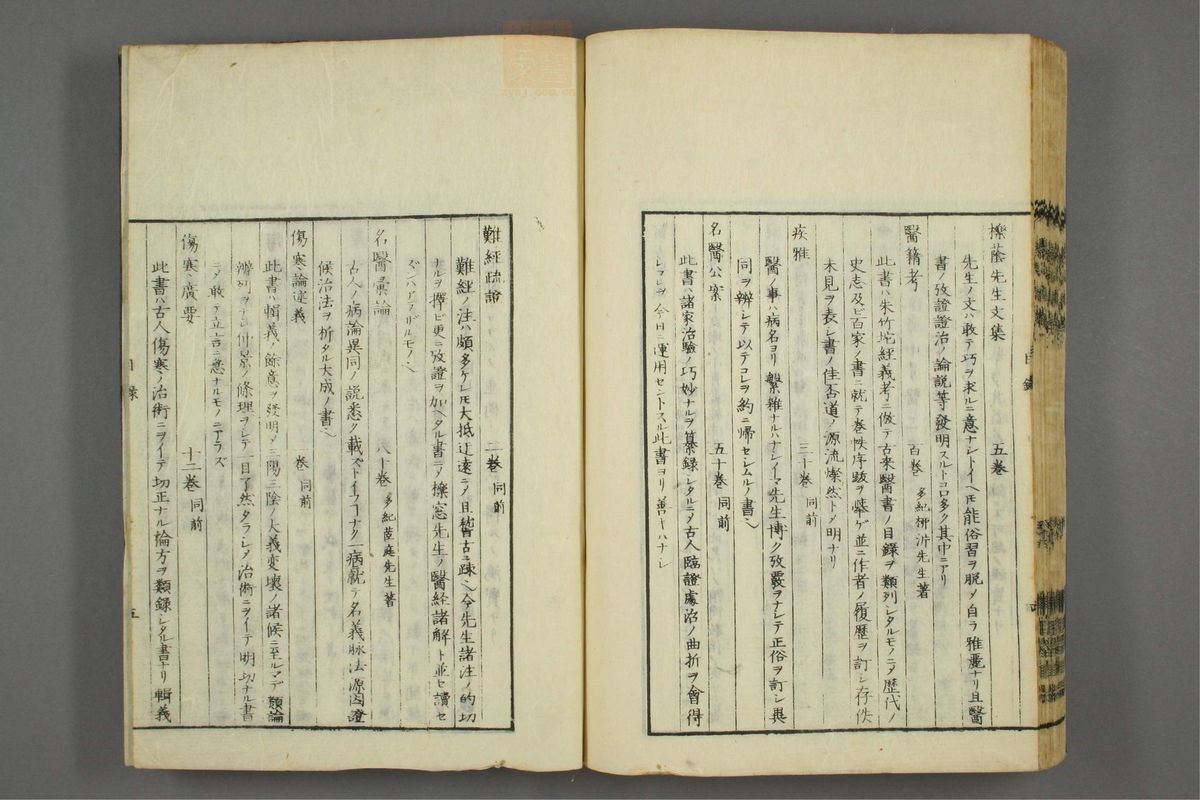 櫟蔭先生文集　五巻
先生ノ文ハ敢テ巧ヲ求ルニ意ナシトイヘ𪜈能俗習ヲ脱〆自ラ雅麗ナリ且醫
書ノ攷證證治ノ論説等發明スルトコロ多ク其中ニアリ
醫籍考　百巻　多紀柳沜先生著
此書ハ朱竹垞經義考ニ倣テ古来醫書ノ目録ヲ類列シタルモノニ〆歴代ノ
史志及ビ百家ノ書ニ就テ巻帙序跋ヲ擧ゲ並ニ作者ノ履歴ヲ訂シ存佚
未見ヲ表シ書ノ佳否道ノ源流燦然ト〆明ナリ
疾雅　三十巻　同前
醫ノ事ハ病名ヨリ繁雑ナルハナシイマ先生博ク攷覈ヲナシテ正俗ヲ訂シ異
同ヲ辨シテ以テコレヲ約ニ帰セシムルノ書也
名醫公案　五十巻　同前
此書ハ諸家治驗ノ巧妙ナルヲ纂録シタルニ〆古人臨證處治ノ曲折ヲ會得
シコレヲ今日ニ運用セントスル此書ヨリ善キハナシ
目録
難經疏證　二巻　同前
難經ノ注ハ頗多ケレ𪜈大抵迂遠ニ〆且稽古ニ疎也今先生諸注ノ的切
ナルヲ擇ビ更ニ攷證ヲ加ヘタル書ニ〆櫟窓先生ノ醫経諸解ト並セ讀セ
ズンバアラザルモノ也
名醫彙論　八十巻　多紀茝庭先生著
古人ノ病論異同ノ説悉ク載ズトイフコナク一病就テ名義脉法源因證
候治法ヲ析タル大成ノ書也
傷寒論述義　巻　同前
此書ハ輯義ノ餘意ヲ發明〆三陽三陰ノ大義変壊ノ諸候ニ至ルマデ類論
辨列ヲナシ仲景ノ條理ヲシテ一目了然タラシメ治術ニヲイテ明切ナル書
ニ〆敢テ立言ニ意ナルモノニアラズ
傷寒廣要　十二巻　同前
此書ハ古人傷寒ノ治術ニヲイテ切正ナル論方ヲ類録シタル書ナリ輯義
目録　五